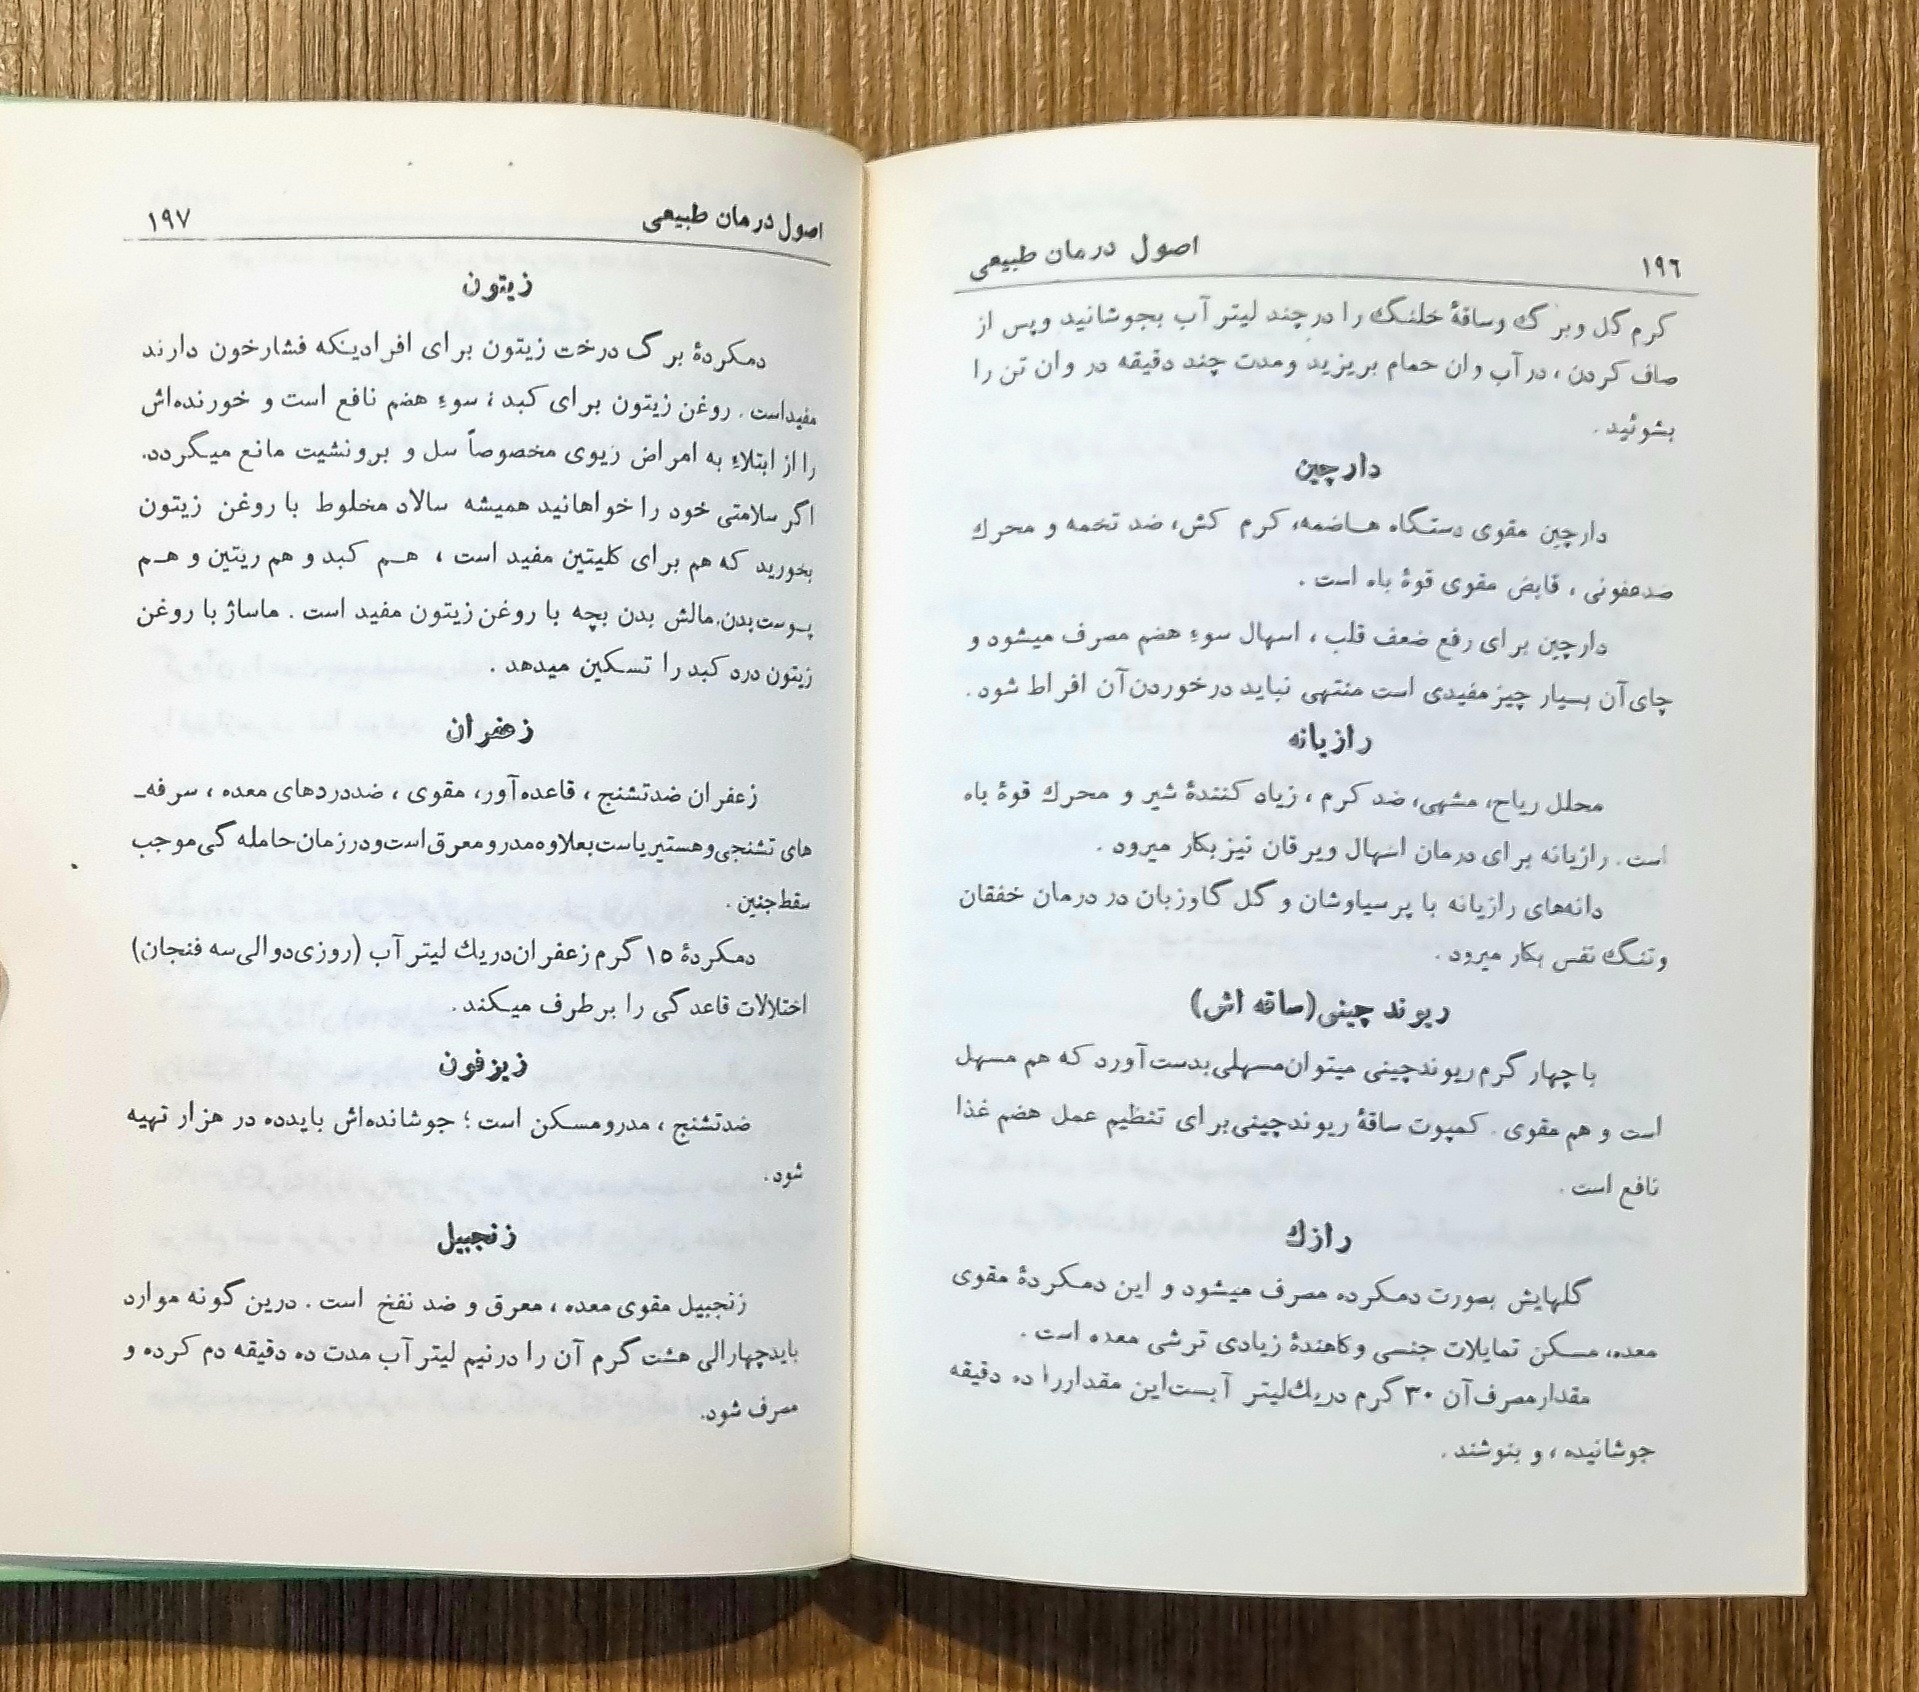 ۱۹٦ اصول درمان طبیعی
کرم گل وبرگ وساقهٔ خلنگ را درچند لیتر آب بجوشانید وپس از
صاف کردن ، در آب وان حمام بریزید ومدت چند دقیقه در وان تن را
بشوئید .
دارچین
دارچین مقوی دستگاه هاضمه، کرم کش، ضد تخمه و محرك
ضدعفونی ، قابض مقوی قوهٔ باه است .
دارچین برای رفع ضعف قلب ، اسهال سوءِ هضم مصرف میشود و
چای آن بسیار چیز مفیدی است منتهی نباید درخوردن آن افراط شود .
رازیانه
محلل ریاح، مشهی، ضد کرم ، زیاد کنندهٔ شیر و محرك قوهٔ باه
است . رازیانه برای درمان اسهال ویرقان نیز بکار میرود .
دانه‌های رازیانه با پرسیاوشان و گل گاوزبان در درمان خفقان
وتنگ نفس بکار میرود .
ریوند چینی(ساقه اش)
با چهار گرم ریوندچینی میتوان مسهلی بدست آورد که هم مسهل
است و هم مقوی . کمپوت ساقهٔ ریوندچینی برای تنظیم عمل هضم غذا
نافع است .
رازك
گلهایش بصورت دمکرده مصرف میشود و این دمکردهٔ مقوی
معده، مسکن تمایلات جنسی وکاهندهٔ زیادی ترشی معده است .
مقدار مصرف آن ۳۰ گرم دریك لیتر آبست این مقداررا ده دقیقه
جوشانیده ، و بنوشند .
اصول درمان طبیعی ۱۹۷
زیتون
دمکردهٔ برگ درخت زیتون برای افرادیکه فشارخون دارند
مفیداست . روغن زیتون برای کبد ؛ سوءِ هضم نافع است و خورنده‌اش
را از ابتلاءِ به امراض زیوی مخصوصاً سل و برونشیت مانع میگردد.
اگر سلامتی خود را خواهانید همیشه سالاد مخلوط با روغن زیتون
بخورید که هم برای کلیتین مفید است ، هم کبد و هم ریتین و هم
پوست بدن. مالش بدن بچه با روغن زیتون مفید است . ماساژ با روغن
زیتون درد کبد را تسکین میدهد .
زعفران
زعفران ضدتشنج ، قاعده‌آور، مقوی ، ضددردهای معده ، سرفه‌ـ
های تشنجی وهستیریاست بعلاوه مدرومعرق است ودرزمان حامله گی موجب
سقط جنین .
دمکردهٔ ۱۵ گرم زعفران دریك لیتر آب (روزی دو الی سه فنجان)
اختلالات قاعدگی را برطرف میکند .
زیزفون
ضدتشنج ، مدرومسکن است ؛ جوشانده‌اش بایدده در هزار تهیه
شود .
زنجبیل
زنجبیل مقوی معده ، معرق و ضد نفخ است . درین گونه موارد
بایدچهارالی هشت گرم آن را درنیم لیتر آب مدت ده دقیقه دم کرده و
مصرف شود.